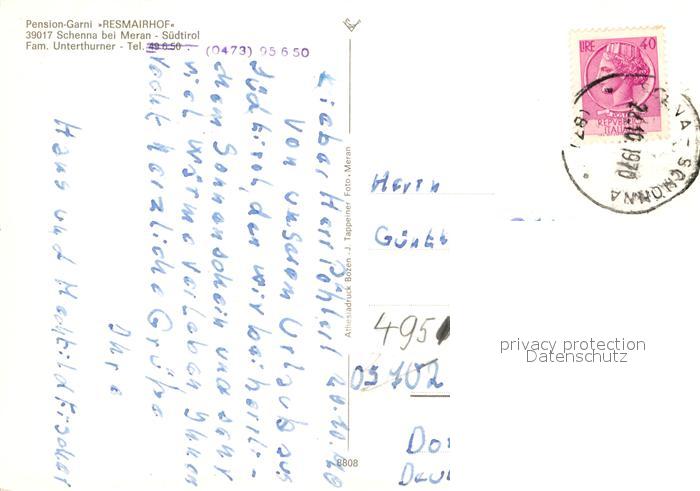 Pension-Garni »RESMAIRHOF«
39017 Schenna bei Meran - Südtirol
Fam. Unterthurner - Tel. 49 6 50 (0473) 95650
20.10.70
Lieber Herr Pöhler!
Von unserem Urlaub aus
Südtirol, den wir bei herrli-
chem Sonnenschein und sehr
viel Wärme verleben Ihnen
recht herzliche Grüße
Ihre
Hans und Mechtild Fischer
Athesiadruck Bozen - J. Tappeiner Foto - Meran
8808
LIRE 40
REPVBBLICA
ITALIANA
SCENA - SCHONNA
21.10.1970
(BZ)
Herrn
Günt
495
05 702
Do
Deu
privacy protection
Datenschutz